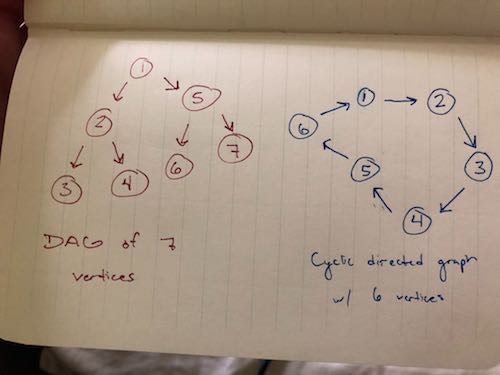 1
2
5
3
4
6
7
DAG of 7
vertices
1
2
6
3
5
4
Cyclic directed graph
w/ 6 vertices